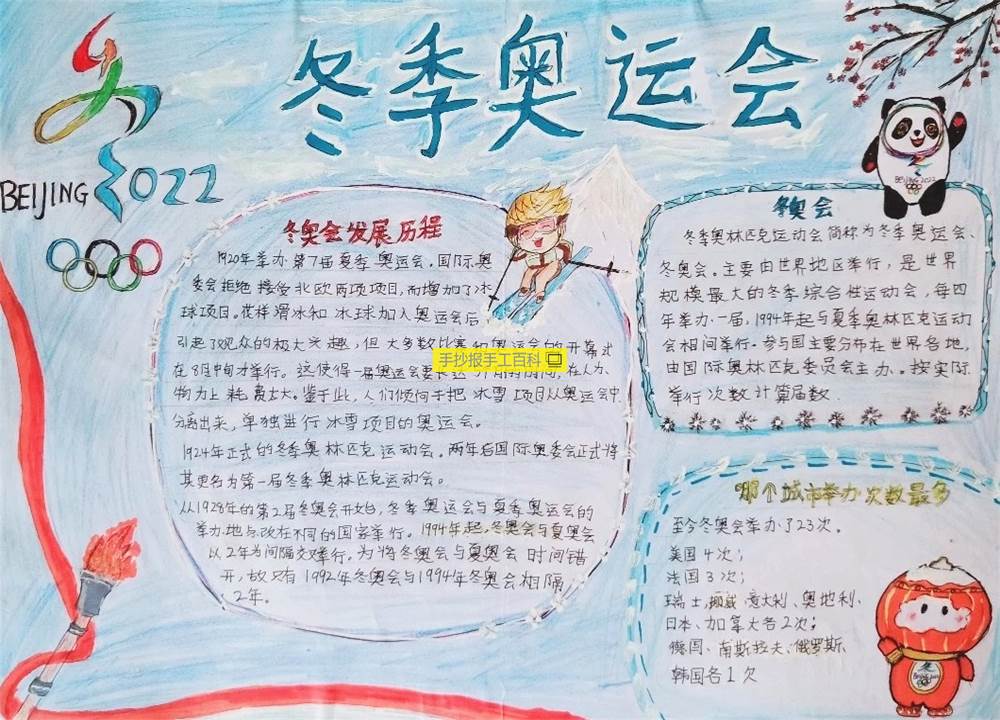 冬季奥运会
BEIJING 2022
冬奥会发展历程
1920年举办第7届夏季奥运会。国际奥
委会拒绝接受北欧两项项目，而增加了冰
球项目。花样滑冰和冰球加入奥运会后
引起了观众的极大兴趣，但大多数比赛和奥运会的开幕式
在8月中旬才举行。这使得一届奥运会要
物力上耗费太大。鉴于此，人们倾向于把冰雪项目从奥运会中
分离出来，单独进行冰雪项目的奥运会。
1924年正式的冬季奥林匹克运动会。两年后国际奥委会正式将
其更名为第一届冬季奥林匹克运动会。
从1928年的第2届冬奥会开始，冬季奥运会与夏季奥运会的
举办地与改在不同的国家举行。1994年起，冬奥会与夏奥会
以2年为间隔交举行。为将冬奥会与夏奥会时间错
开，故只有1992年冬奥会与1994年冬奥会相隔
2年。
手抄报手工百科
BEIJING 2022
冬奥会
冬季奥林匹克运动会简称为冬季奥运会、
冬奥会。主要由世界地区举行，是世界
规模最大的冬季综合性运动会，每四
年举办一届，1994年起与夏季奥林匹克运动
会相间举行。参与国主要分布在世界各地，
由国际奥林匹克委员会主办。按实际
举行次数计算届数.
哪个城市举办次数最多
至今冬奥会举办了23次。
美国4次；
法国3次；
瑞士、挪威、意大利、奥地利、
日本、加拿大各2次；
德国、南斯拉夫、俄罗斯、
韩国各1次